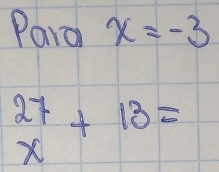 Para x = -3
27
x + 13 =